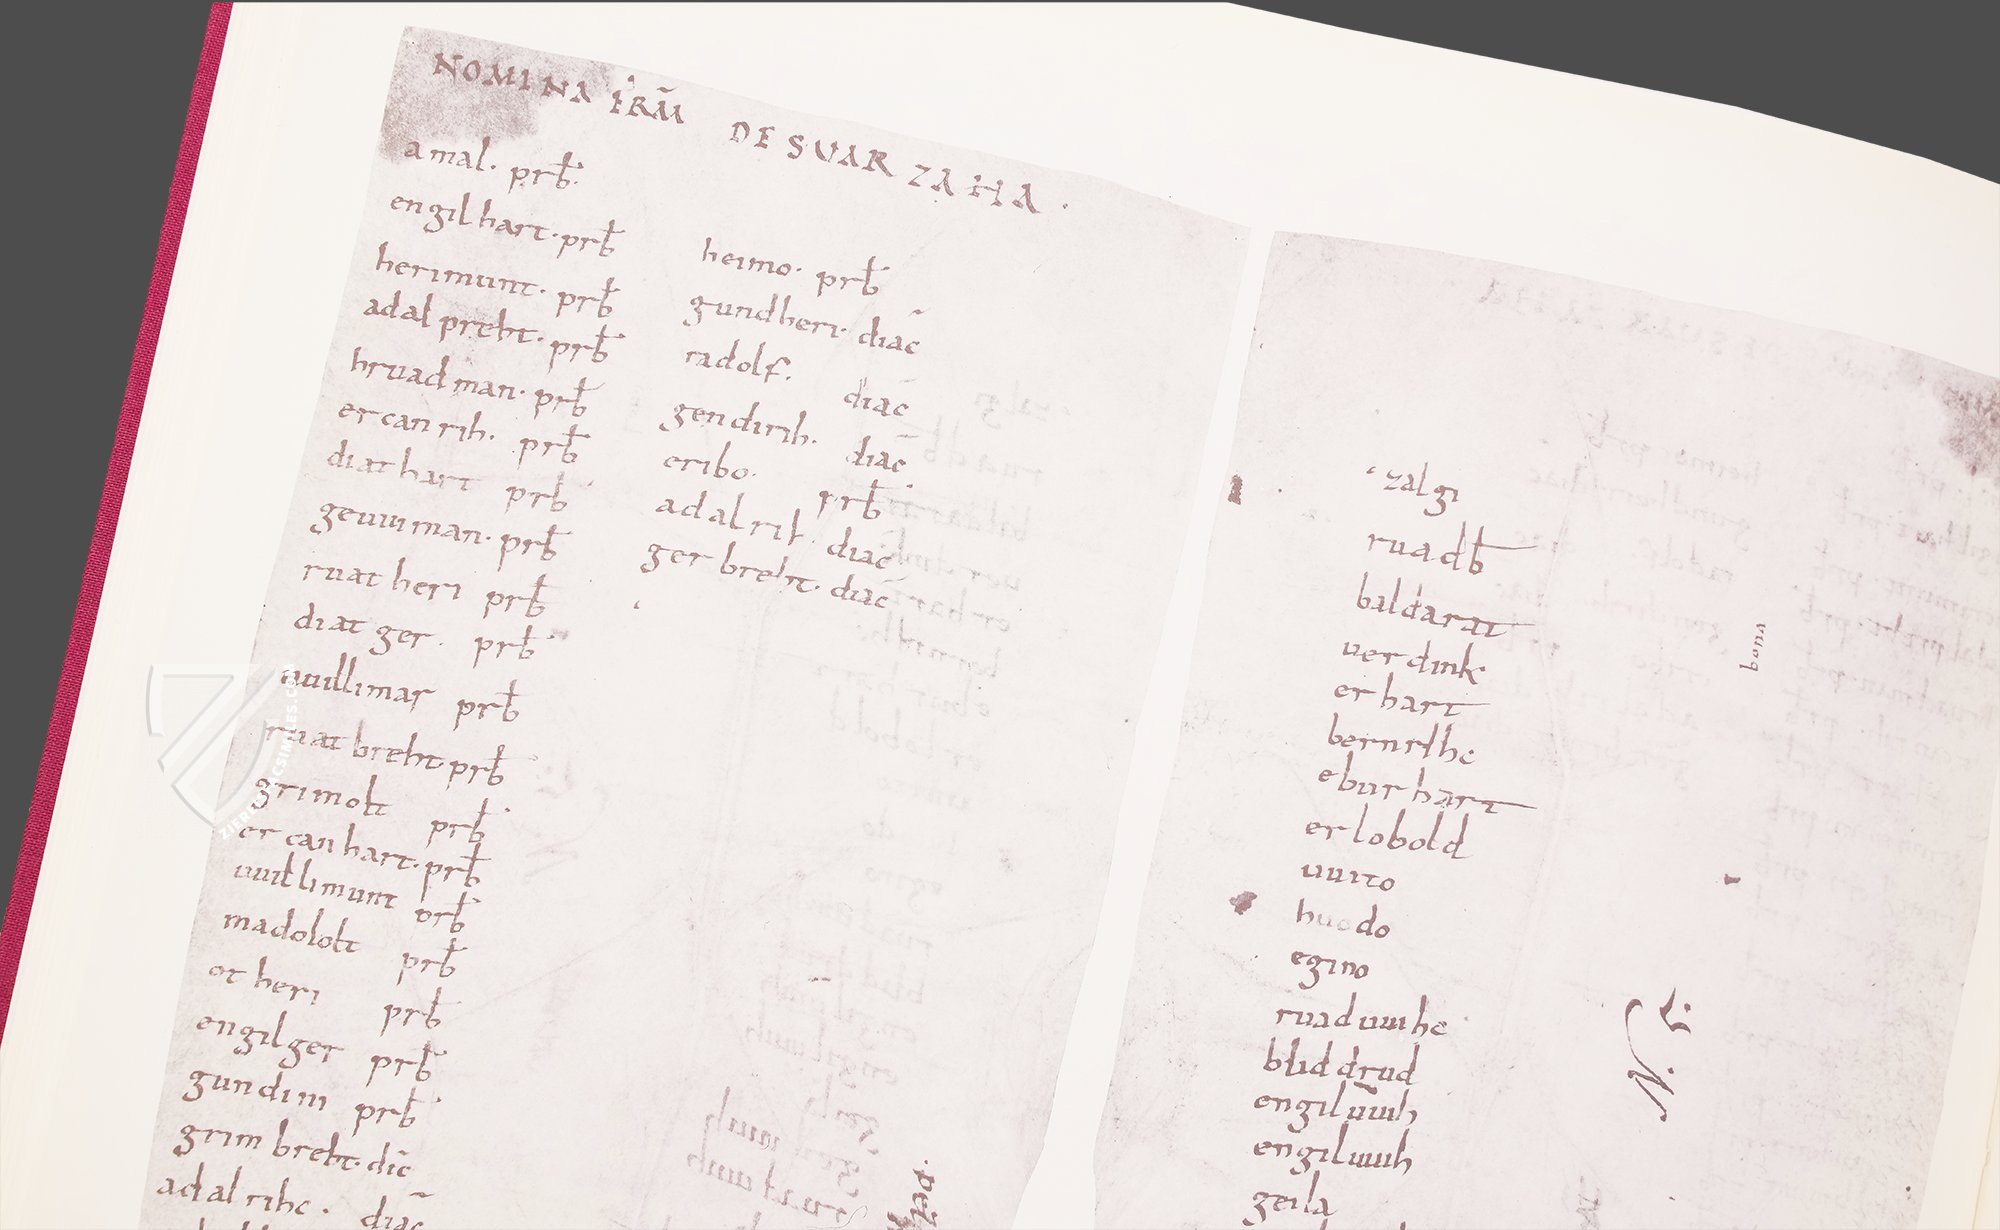 NOMINA FRM̄ DE SUARZAHA.
amal. prb̄.
engilhart. prb̄
herimunt. prb̄
adalpreht. prb̄
hruadman. prb̄
ercanrih. prb̄
diathart prb̄
geuuiman. prb̄
ruatheri prb̄
diatger. prb̄
uuillimar prb̄
ruatbreht prb̄
grimolt prb̄
ercanhart. prb̄
uuillimunt prb̄
madololt prb̄
otheri prb̄
engilger prb̄
gundini prb̄
grimbreht. dic̄
adalrihc. diac̄
heimo. prb̄
gundheri. diac̄
radolf. diac̄
gendirih. diac̄
eribo. prb̄
adalrih. diac̄
gerbreht. diac̄
zalgi
ruadb̄
baldarat
uerdink
erhart
bernrihc
eburhart
erlobold
uuito
huodo
egino
ruaduuihc
bliddrud
engiluuih
engiluuih
geila
bona
ZIEREIS FACSIMILES.COM